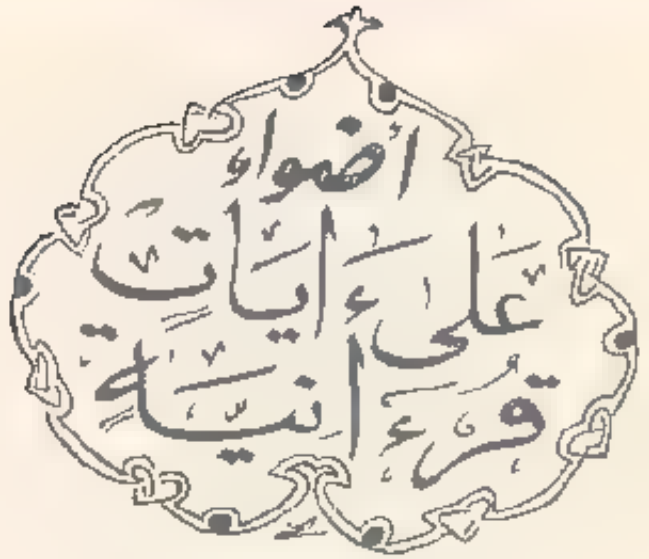 أضواء
عَلَى ءَايَاتٍ
قُرْءَانِيَّةٍ